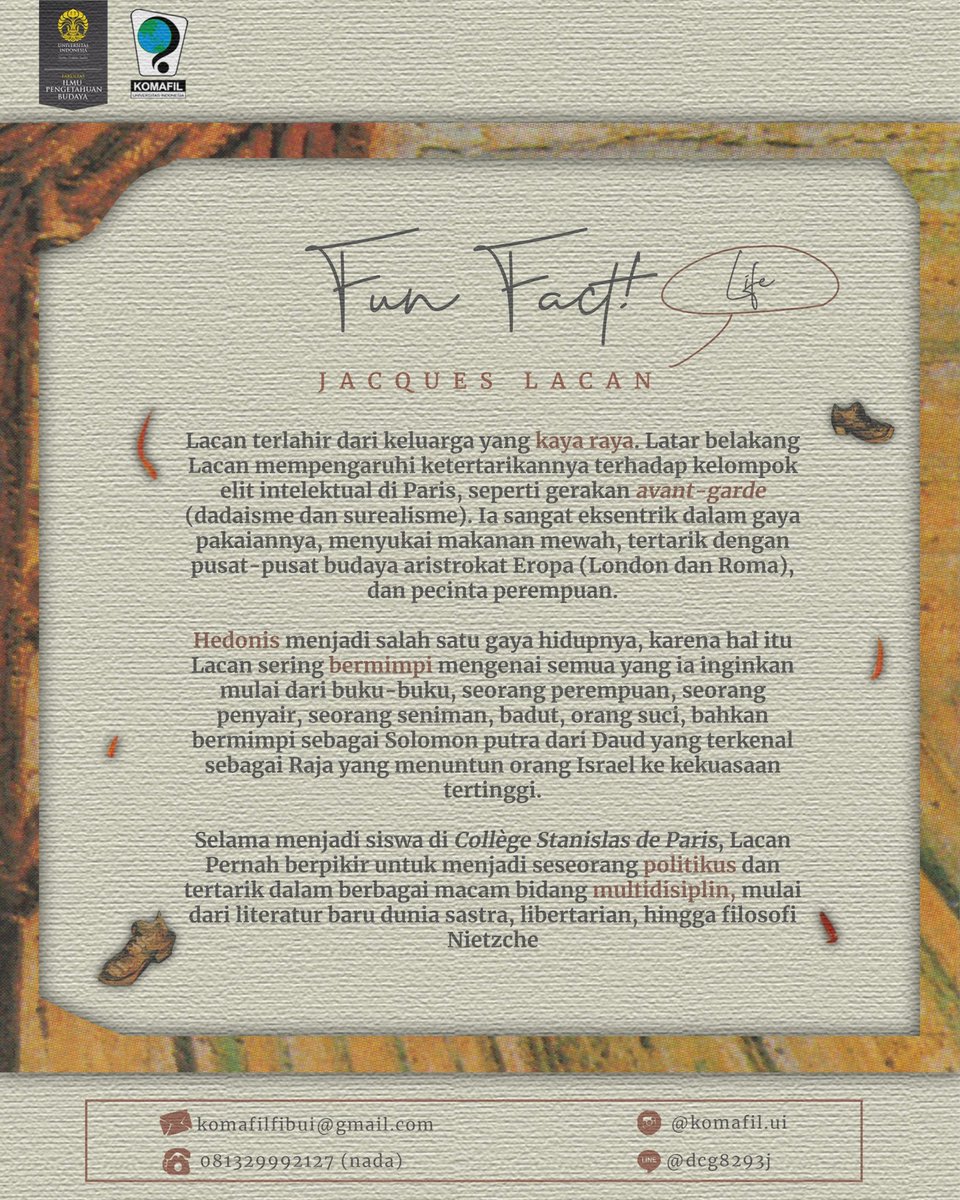 UNIVERSITAS
INDONESIA
FAKULTAS
ILMU
PENGETAHUAN
BUDAYA
KOMAFIL
UNIVERSITAS INDONESIA
Fun Fact!
Life
JACQUES LACAN
Lacan terlahir dari keluarga yang kaya raya. Latar belakang
Lacan mempengaruhi ketertarikannya terhadap kelompok
elit intelektual di Paris, seperti gerakan avant-garde
(dadaisme dan surealisme). Ia sangat eksentrik dalam gaya
pakaiannya, menyukai makanan mewah, tertarik dengan
pusat-pusat budaya aristrokat Eropa (London dan Roma),
dan pecinta perempuan.
Hedonis menjadi salah satu gaya hidupnya, karena hal itu
Lacan sering bermimpi mengenai semua yang ia inginkan
mulai dari buku-buku, seorang perempuan, seorang
penyair, seorang seniman, badut, orang suci, bahkan
bermimpi sebagai Solomon putra dari Daud yang terkenal
sebagai Raja yang menuntun orang Israel ke kekuasaan
tertinggi.
Selama menjadi siswa di Collège Stanislas de Paris, Lacan
Pernah berpikir untuk menjadi seseorang politikus dan
tertarik dalam berbagai macam bidang multidisiplin, mulai
dari literatur baru dunia sastra, libertarian, hingga filosofi
Nietzche
komafilfibui@gmail.com
@komafil.ui
081329992127 (nada)
LINE
@dcg8293j